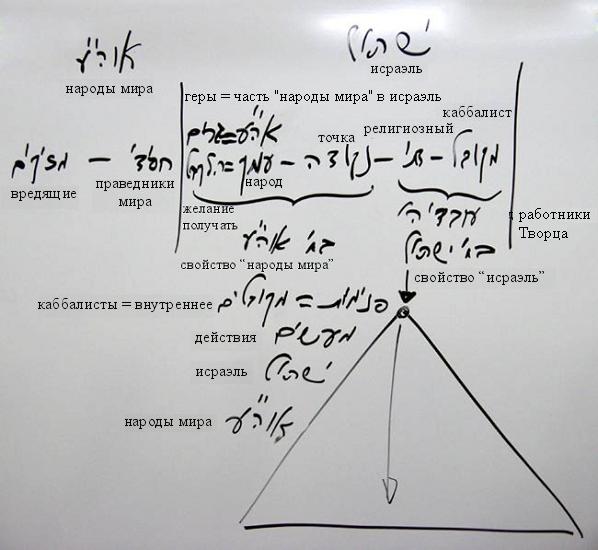 אוה"ע ישראל
народы мира исраэль
геры = часть "народы мира" в исраэль
каббалист
אוה"ע=גרים
точка религиозный
מזיקים – חסדי עמך – נקודה – דתי – מקובל
вредящие праведники мира народ
желание получать
עובדי ה'
работники Творца
בח' אוה"ע בח' ישראל
свойство “народы мира” свойство “исраэль”
каббалисты = внутреннее פנימיות = מקובלים
действия מעשים
исраэль ישראל
народы мира אוה"ע